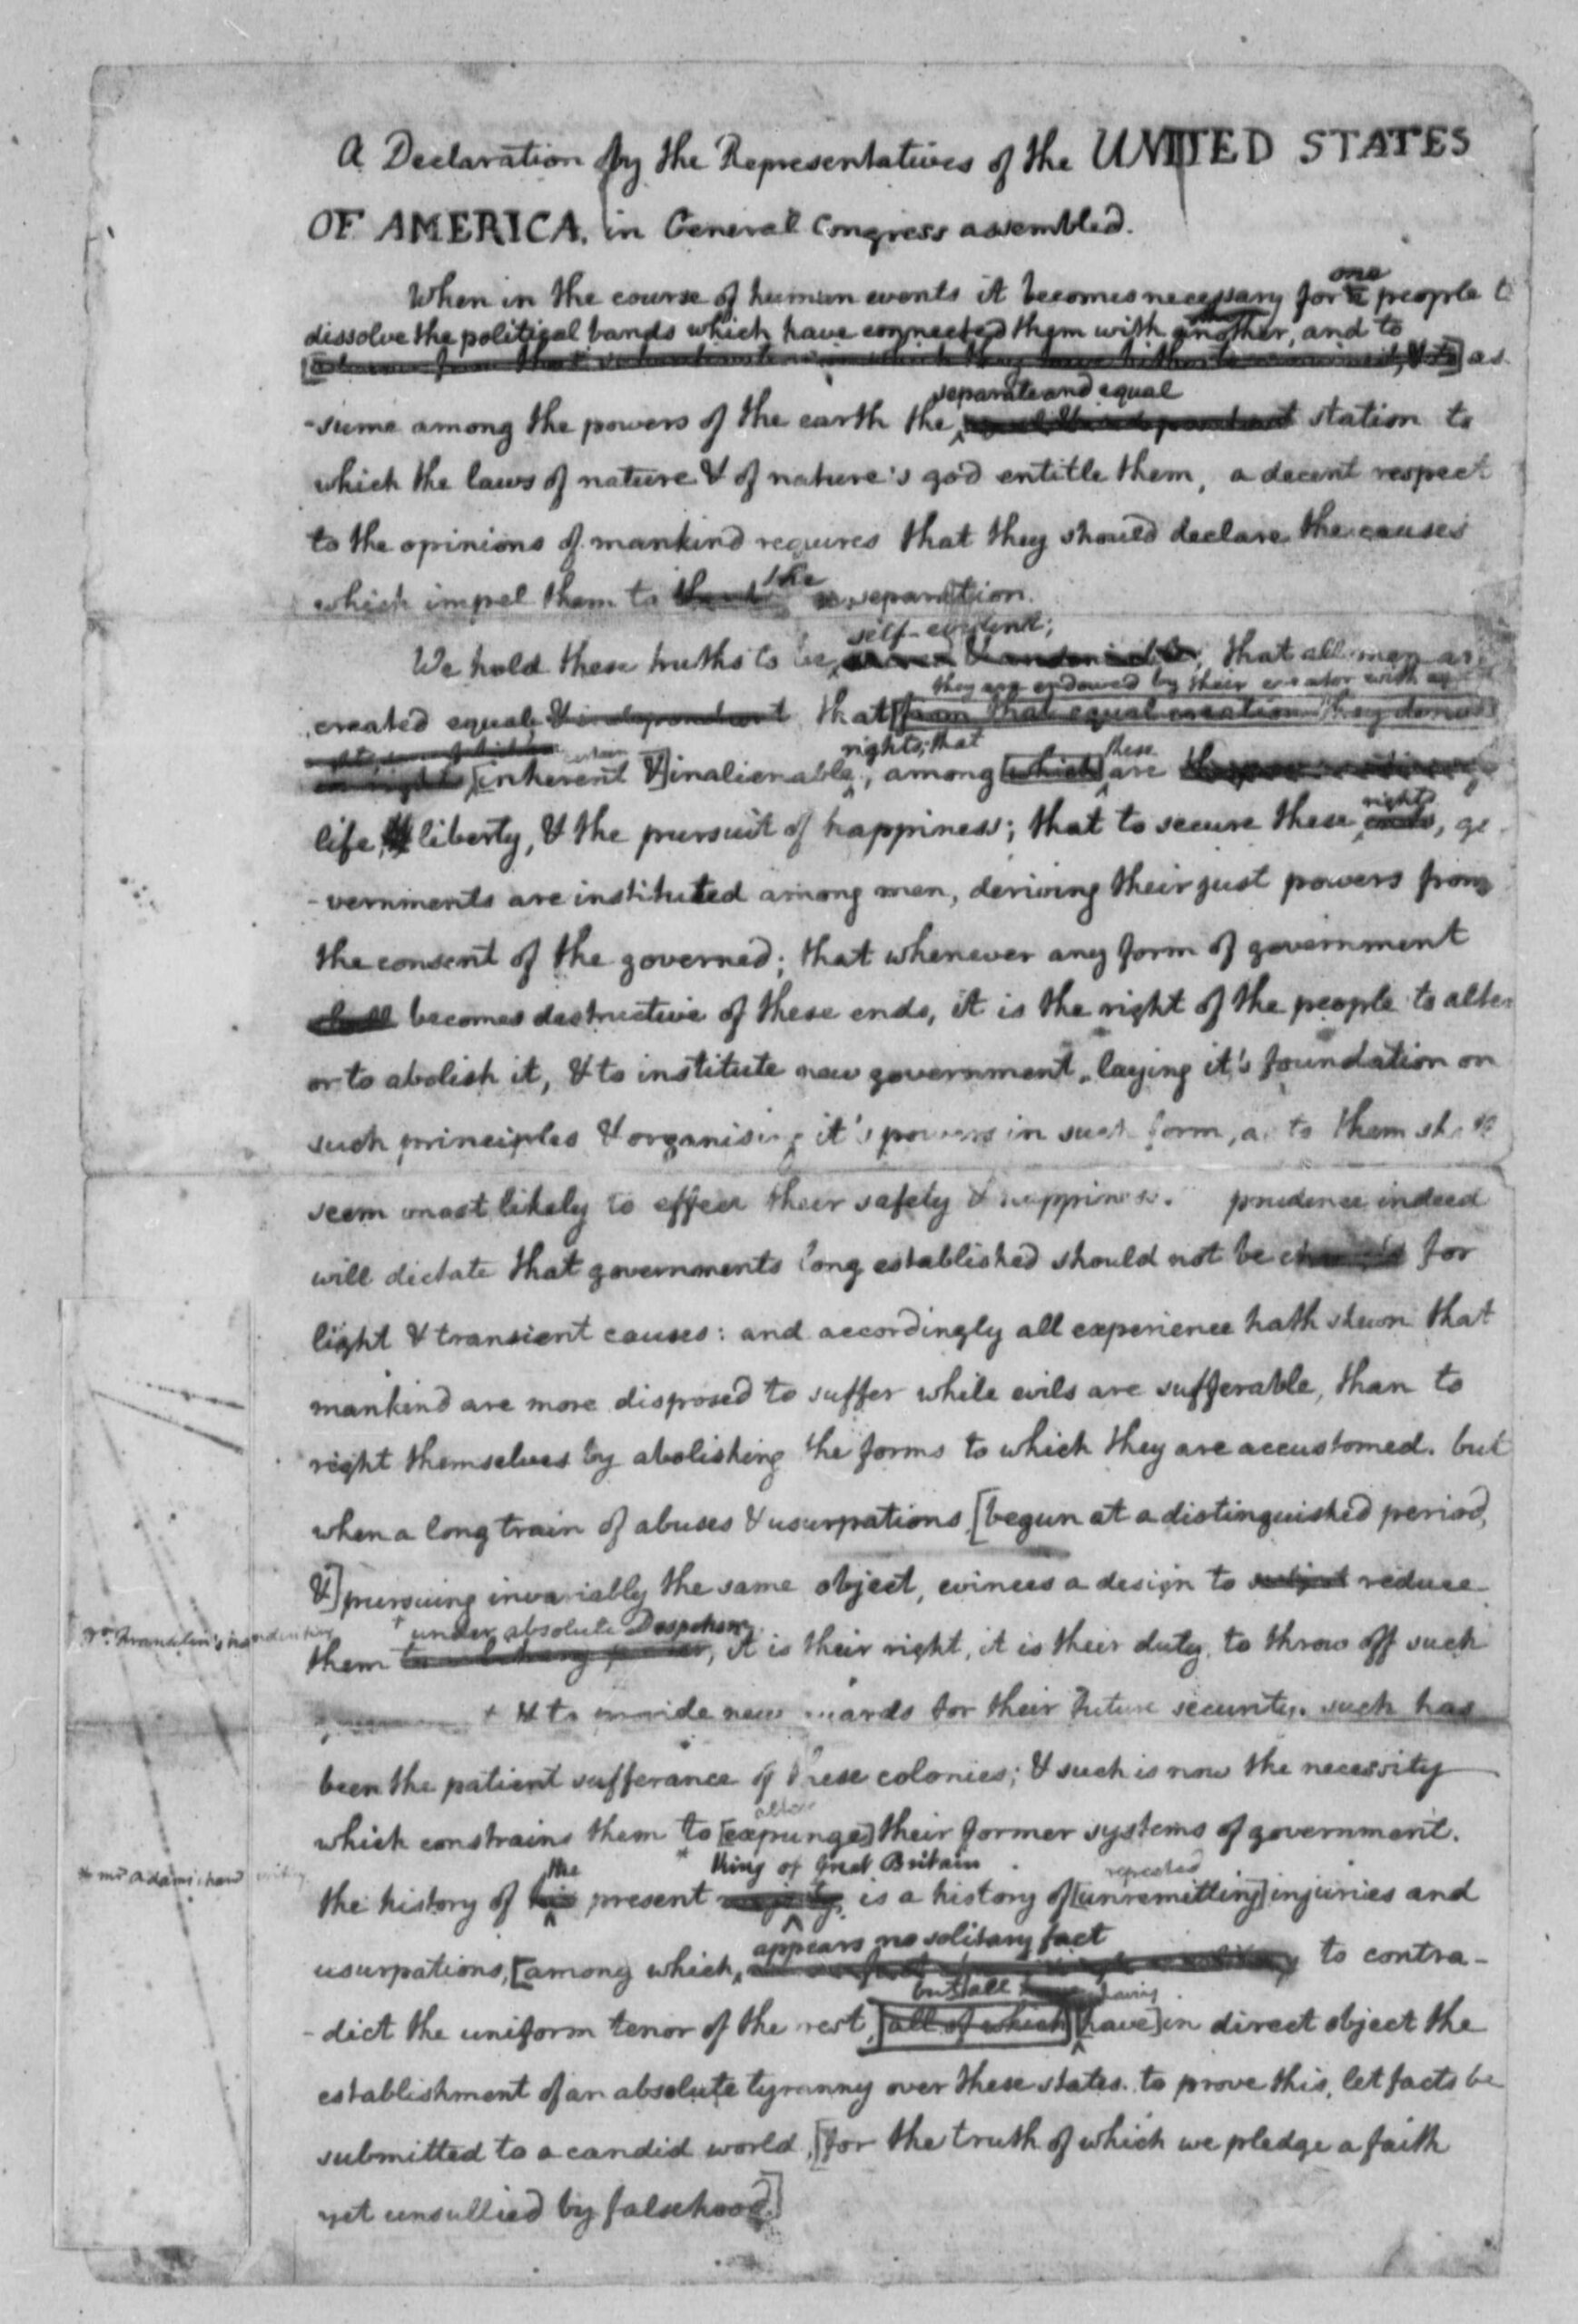 A Declaration by the Representatives of the UNITED STATES
OF AMERICA, in General Congress assembled.
one
When in the course of human events it becomes necessary for a people t
dissolve the political bands which have connected them with another, and to
as
separate and equal
-sume among the powers of the earth the station to
which the laws of nature & of nature's god entitle them, a decent respect
to the opinions of mankind requires that they should declare the causes
the
which impel them to separation.
self-evident;
We hold these truths to be that all men ar
they are endowed by their creator with
created equal & independent that [from that equal creation they
certain
rights; that
these
[inherent &] inalienable, among [which] are
rights
life, liberty, & the pursuit of happiness; that to secure these ends, go
-vernments are instituted among men, deriving their just powers from
the consent of the governed; that whenever any form of government
shall becomes destructive of these ends, it is the right of the people to alter
or to abolish it, & to institute new government, laying it's foundation on
such principles & organising it's powers in such form, as to them shall
seem most likely to effect their safety & happiness. prudence indeed
will dictate that governments long established should not be for
light & transient causes: and accordingly all experience hath shewn that
mankind are more disposed to suffer while evils are sufferable, than to
right themselves by abolishing the forms to which they are accustomed. but
when a long train of abuses & usurpations [begun at a distinguished period,
&] pursuing invariably the same object, evinces a design to subject reduce
Dr. Franklin's handwriting
+ under absolute Despotism
them it is their right, it is their duty, to throw off such
+ & to provide new guards for their future security. such has
been the patient sufferance of these colonies; & such is now the necessity
alter
which constrains them to [expunge] their former systems of government.
* mr Adams' handwriting
the
* King of Great Britain
repeated
the history of his present is a history of [unremitting] injuries and
appears no solitary fact
usurpations, [among which, to contra-
but all having
-dict the uniform tenor of the rest, [all of which] [have] in direct object the
establishment of an absolute tyranny over these states. to prove this, let facts be
submitted to a candid world, [for the truth of which we pledge a faith
yet unsullied by falsehood.]